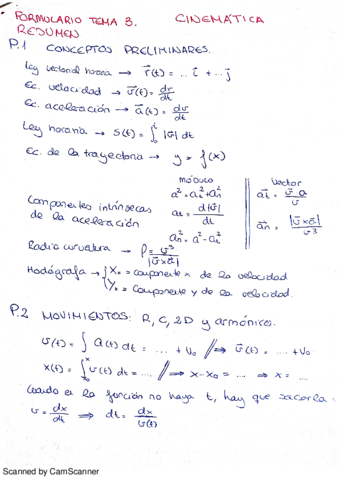 FORMULARIO TEMA 3. CINEMÁTICA
RESUMEN
P.1 CONCEPTOS PRELIMINARES.
Ley vectorial horaria → r⃗(t) = .. i⃗ + .. j⃗
Ec. velocidad → v⃗(t) = dr⃗/dt
Ec. aceleración → a⃗(t) = dv⃗/dt
Ley horaria → s(t) = ∫₀ᵗ |v⃗| dt
Ec. de la trayectoria → y = f(x)
módulo vector
Componentes intrínsecas de la aceleración
a² = at² + an² at = d|v⃗|/dt an² = a² - at²
a⃗t = v⃗·a⃗/v
a⃗n = |v⃗×a⃗|/v³
Radio curvatura → ρ = v³/|v⃗×a⃗|
Hodógrafa → { Xn = componente x de la velocidad
Yn = componente y de la velocidad.
P.2 MOVIMIENTOS: R, C, 2D y armónico.
v(t) = ∫ a(t) dt = ... + V₀ //⇒ v⃗(t) = ... + V₀
x(t) = ∫ v(t) dt = .... //⇒ x - x₀ = ... ⇒ x = ...
Cuando en la función no haya t, hay que sacarla.
v = dx/dt ⇒ dt = dx/v(t)
Scanned by CamScanner